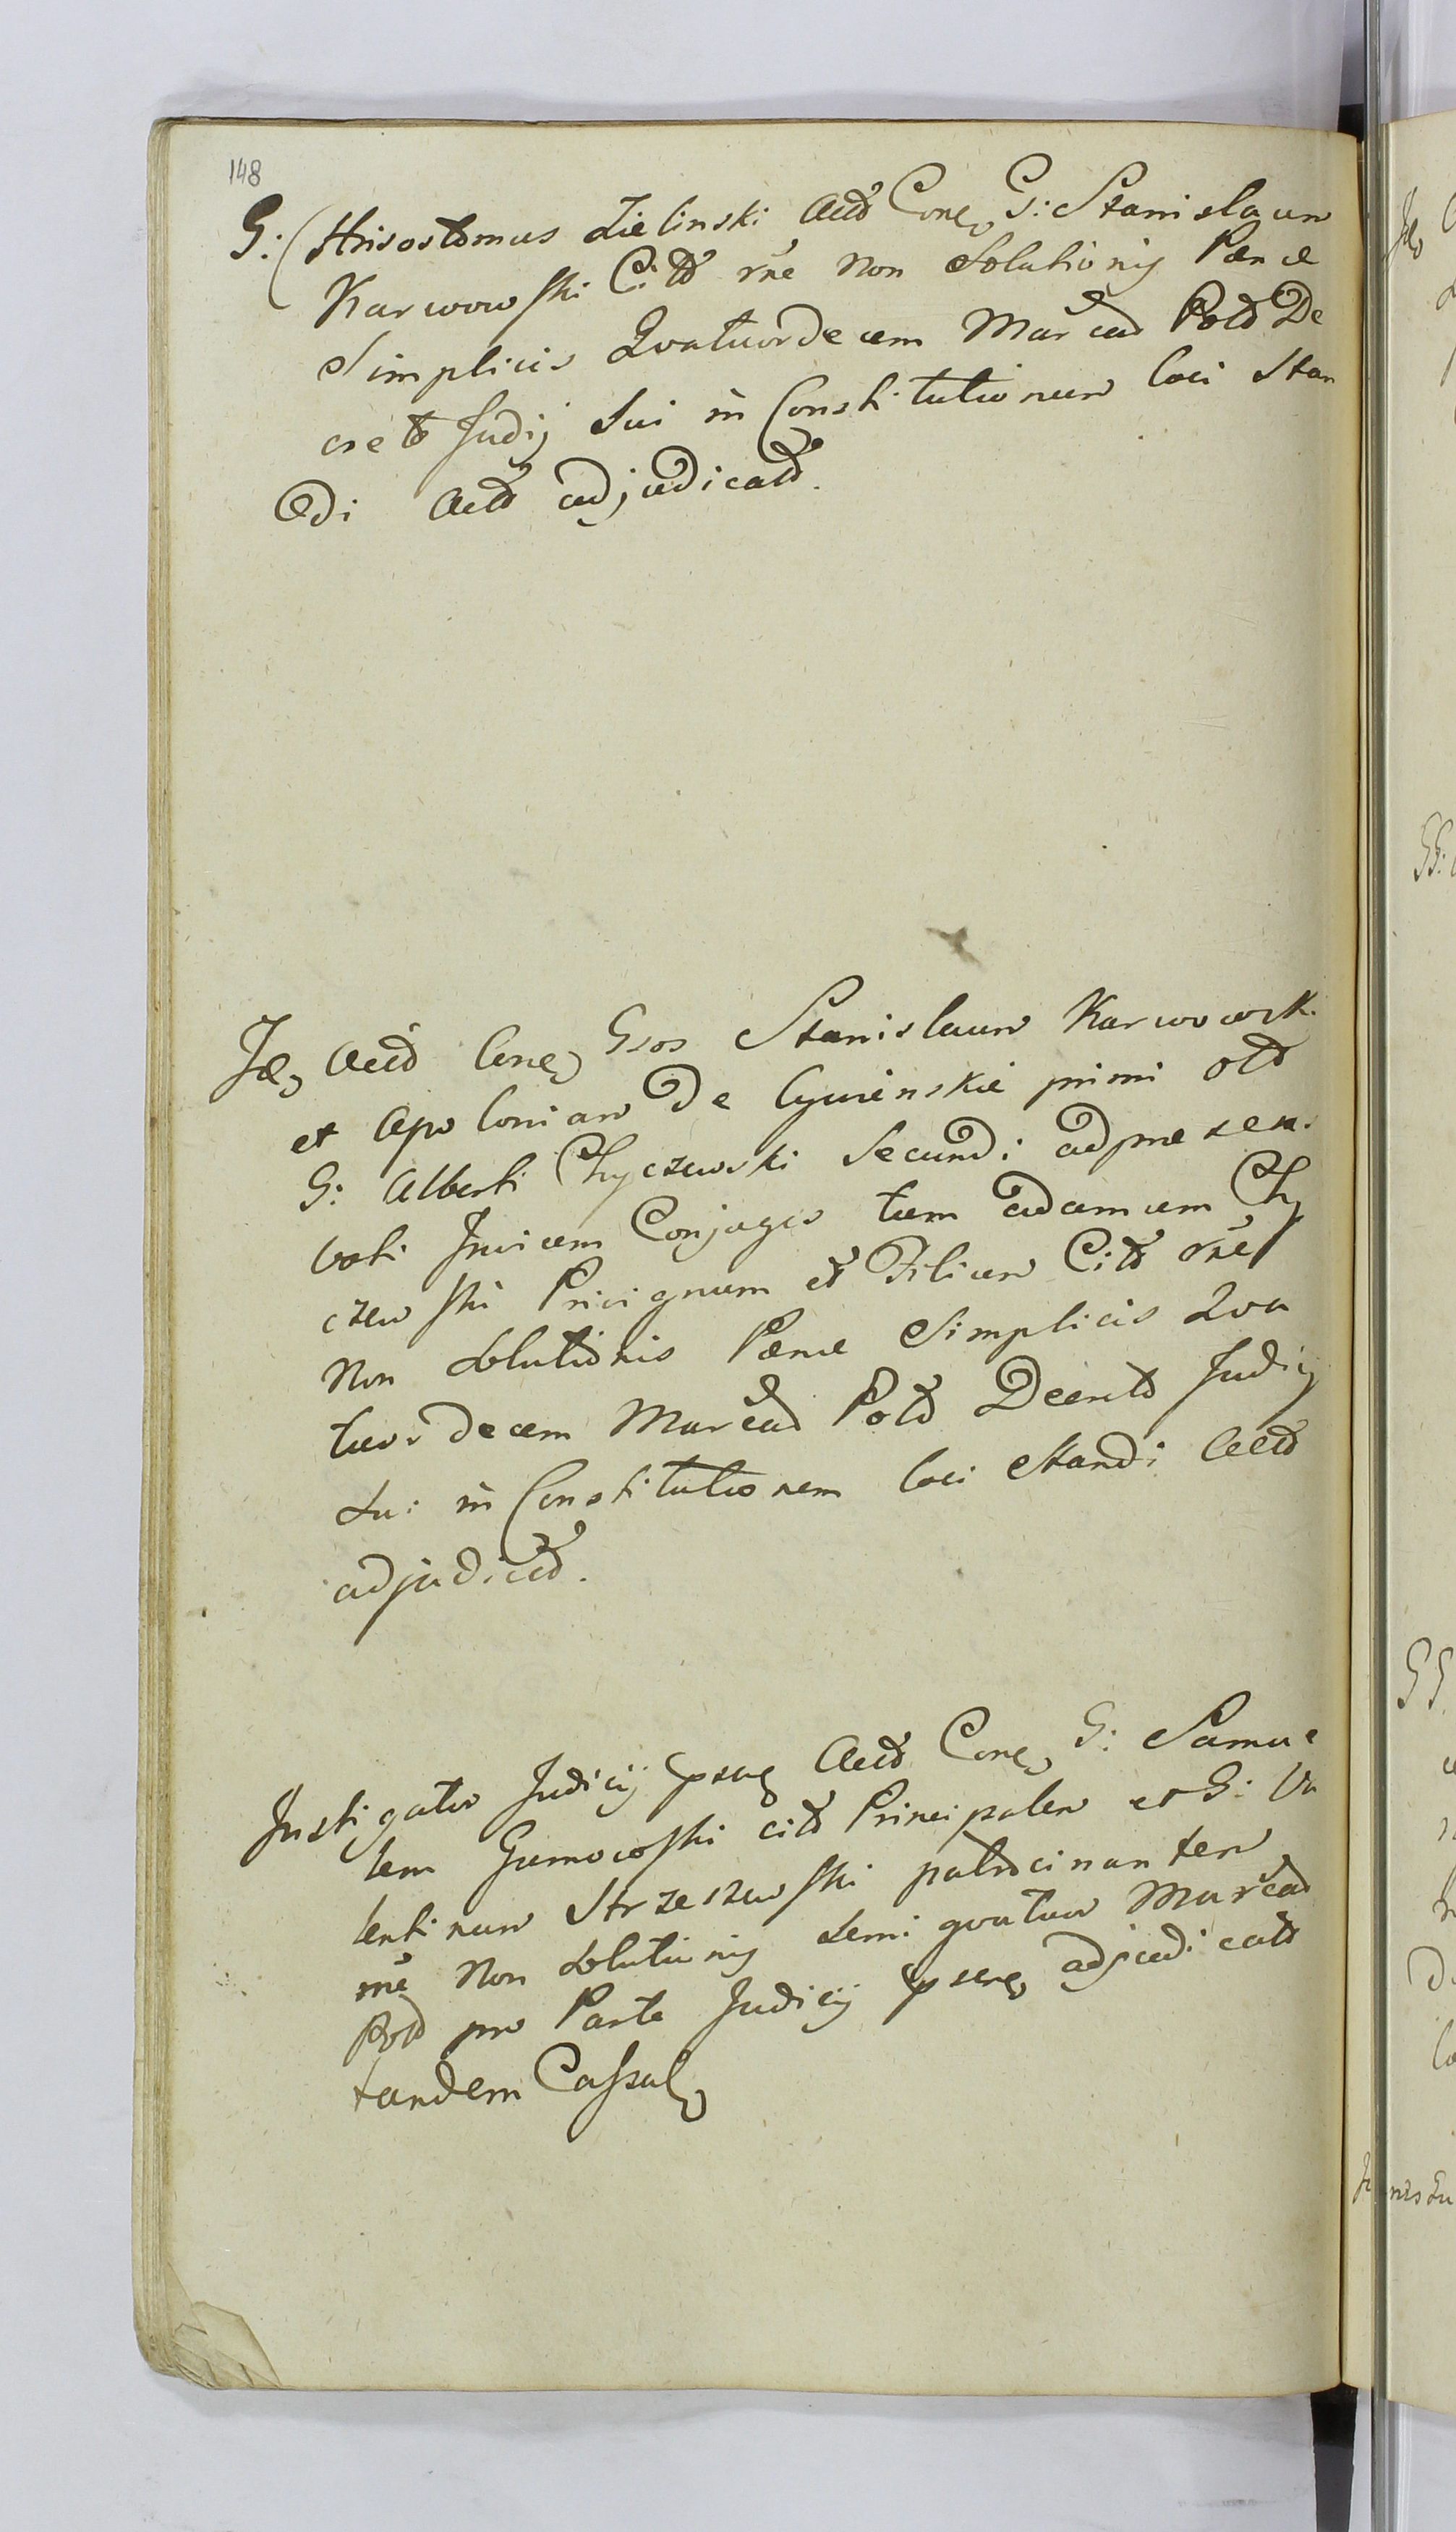 148
G: Chrisostomus Zielinski Actd Cone G: Stanislaum
Karwowski Citt rne non Solutionis Pænæ
Simplicis Quatuordecem Marcad Pold De
creto Judij Sui in Constitutionem loci Stan
di Actd adjudicatd.
Id Actd Cone Gsos Stanislaum Karwowsk.
et Apolonian de primi old
G: Alberti Chyczewski Secundi ad presen.
voti Invicem Conjuges tum Adamum Chy
czewski Privignum et Filium Citt rne
non Solutionis Pænæ Simplicis Qua
tuordecem Marcad Pold Decreto Judij
Sui in Constitutionem loci Standi Actd
adjudicd.
Instigator Judicij Actd Cone G: Samue
lem Gumowski citd Principalem et G: Va
lentinum Strzeszewski patrocinantem
rne non Solutionis Semi quatuor Marcad
Pold pro Parte Judicij adjudicatd
tandem Cassat